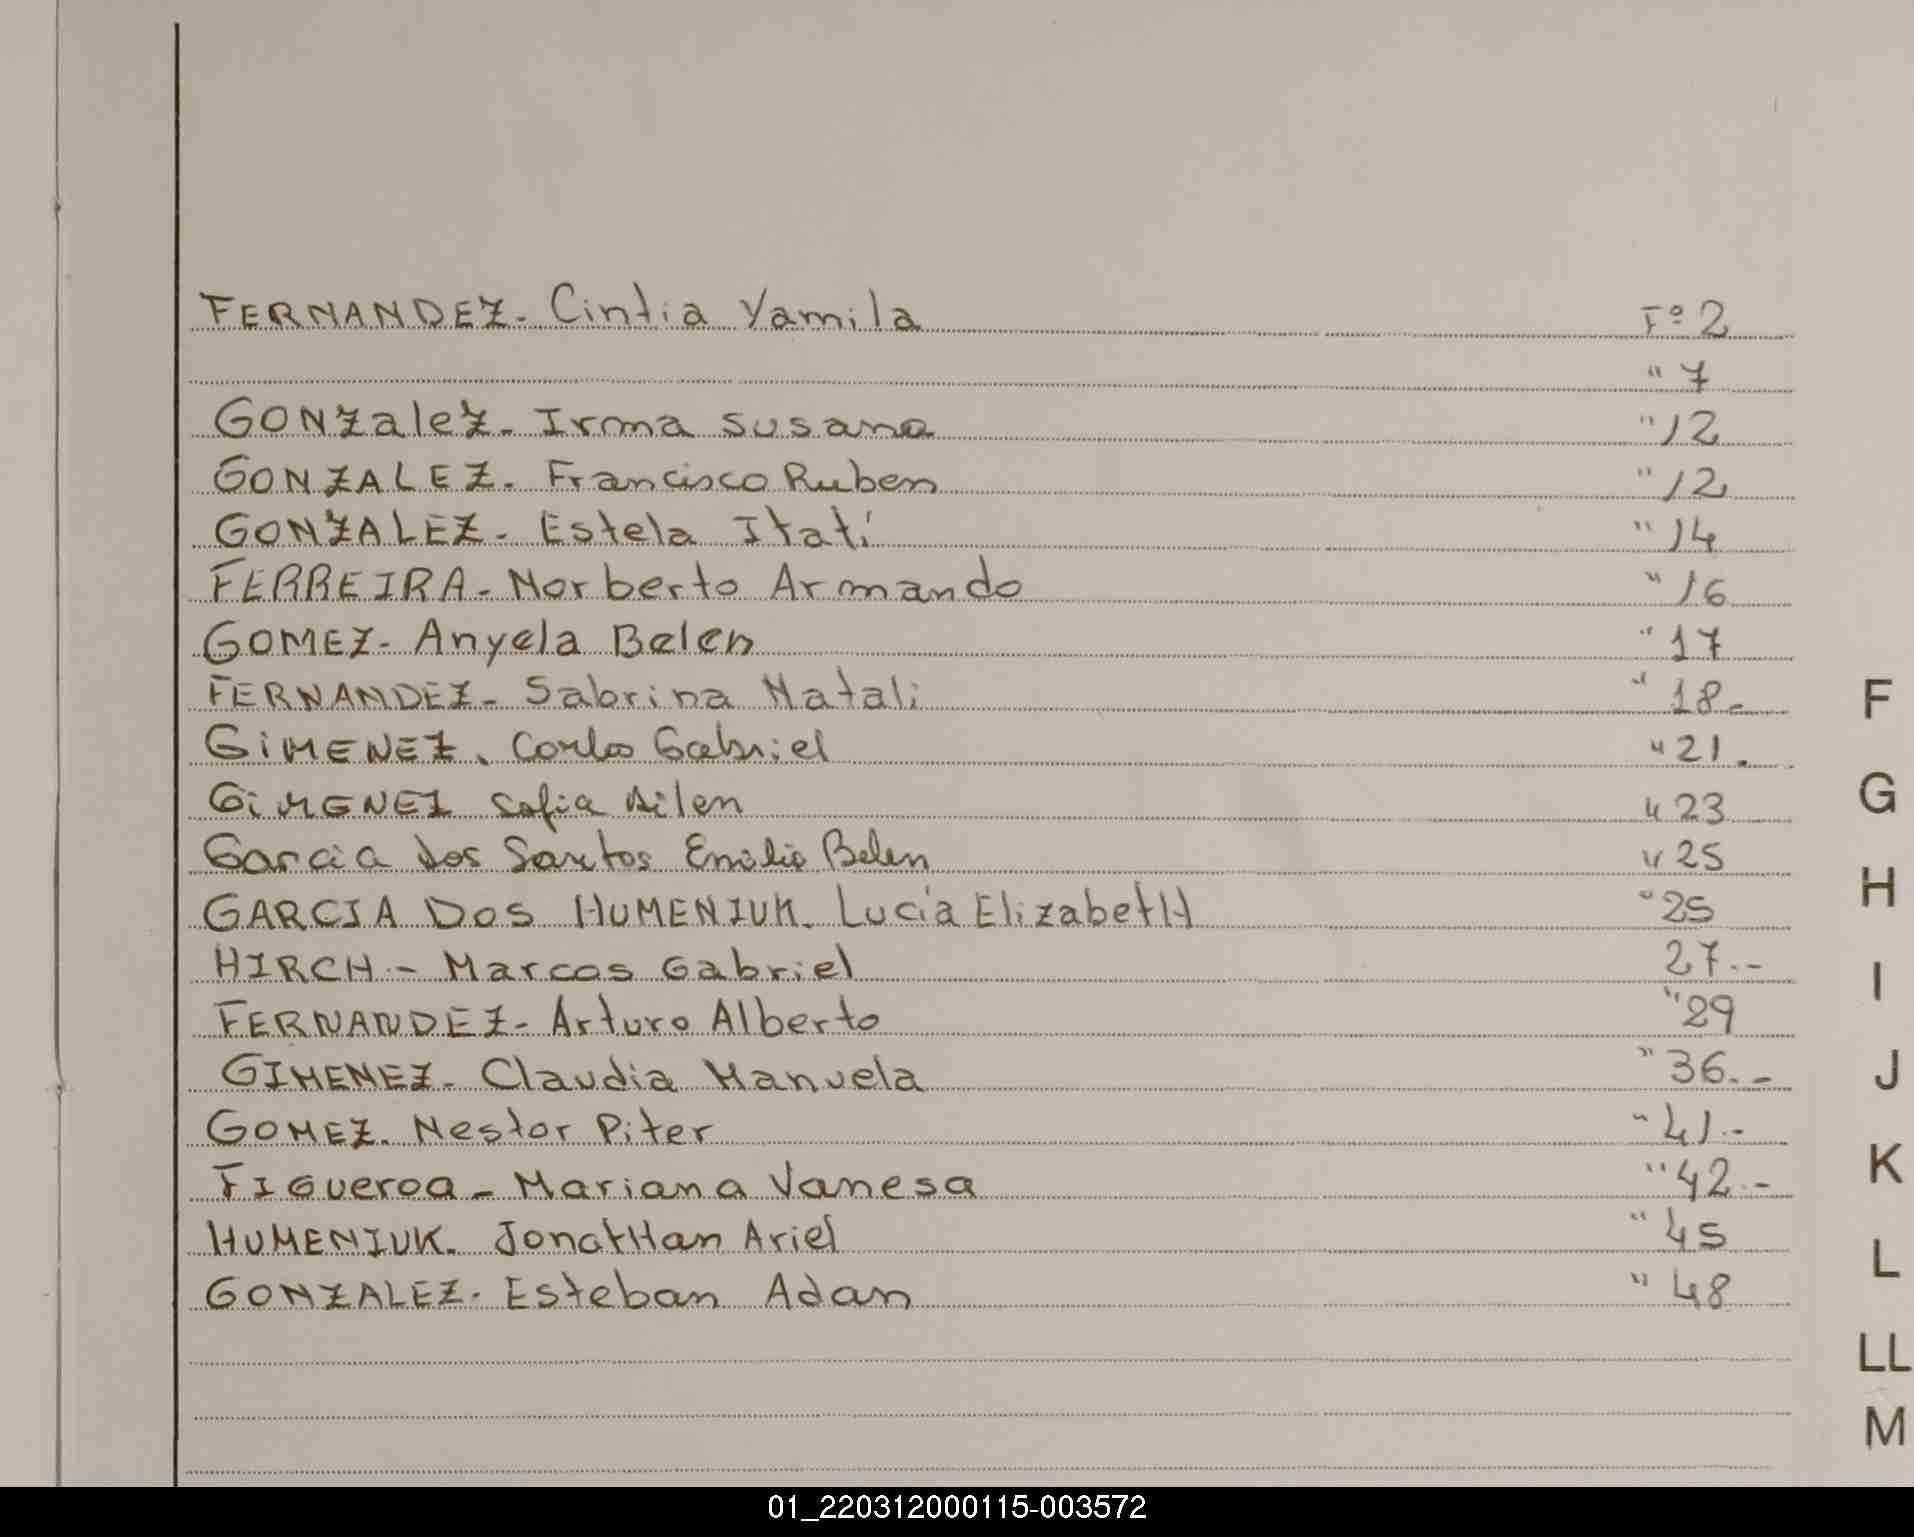 FERNANDEZ. Cintia Yamila Fº 2
" 7
GONZalez. Irma Susana " 12
GONZALEZ. Francisco Ruben " 12
GONZALEZ. Estela Itatí " 14
FERREIRA. Norberto Armando " 16
GOMEZ. Anyela Belen " 17
FERNANDEZ. Sabrina Natali " 18.
F
GiMENEZ. Carlos Gabriel " 21.
GiMENEZ Sofia Ailen " 23
G
Garcia dos Santos Emilio Belen " 25
GARCIA DOS HUMENIUK. Lucía ElizabetH " 25
H
HIRCH.- Marcos Gabriel 27.-
I
FERNANDEZ. Arturo Alberto " 29
GIMENEZ. Claudia Manuela " 36.-
J
GOMEZ. Nestor Piter " 41.-
FIGueroa. Mariana Vanesa " 42.-
K
HUMENIUK. JonatHan Ariel " 45
L
GONZALEZ. Esteban Adan " 48
LL
M
01_220312000115-003572